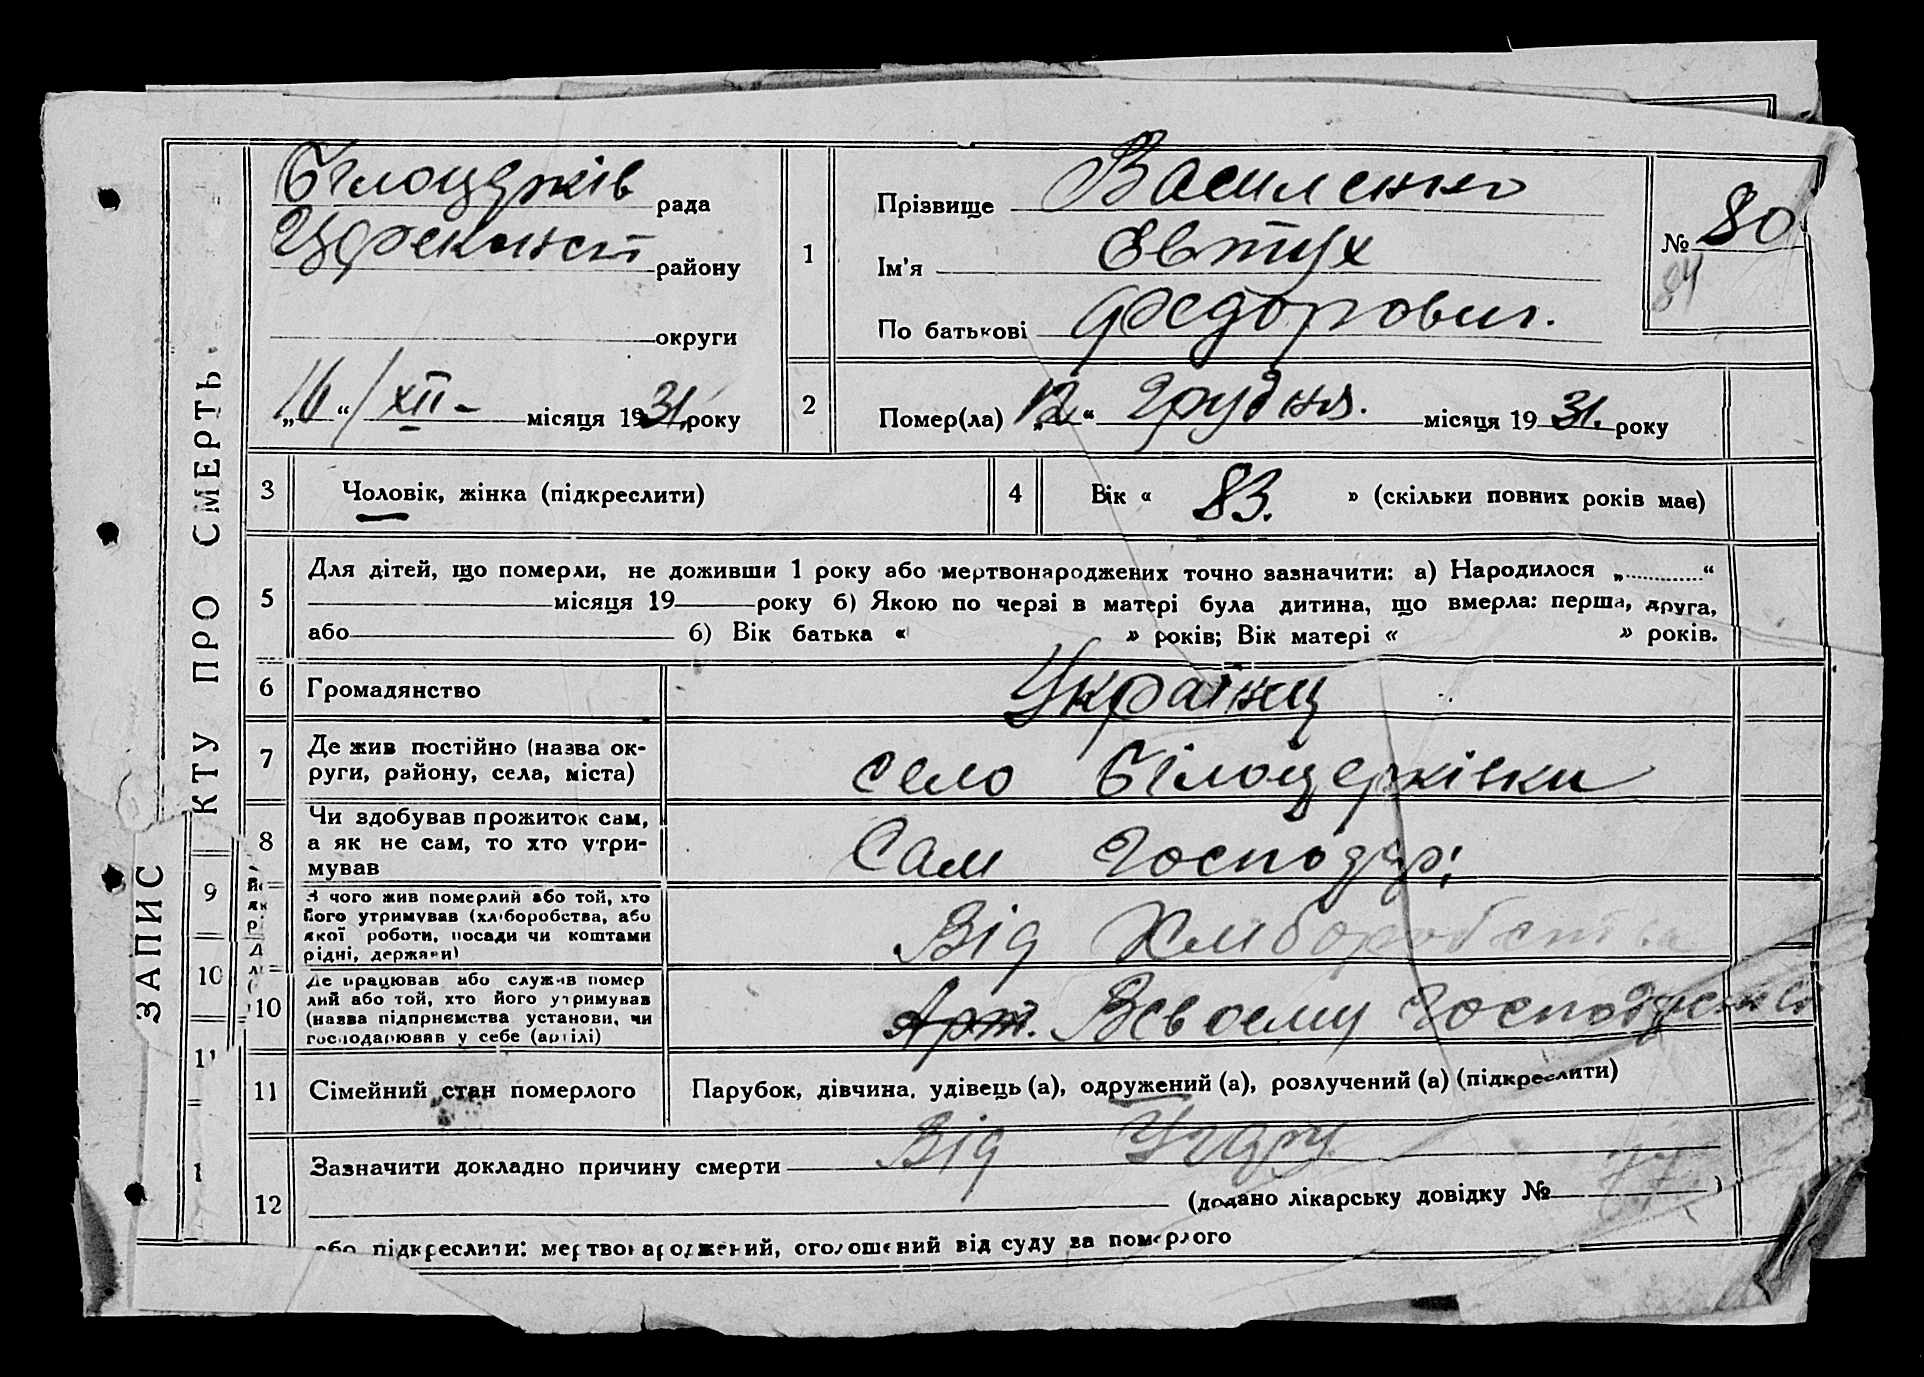 ЗАПИС
КТУ ПРО СМЕРТЬ.
Білоцерків рада
району
округи
„16“ / XII - місяця 1931. року
1
Прізвище Василенко
Ім'я Євтух
По батькові Федорович.
№ 80
84
2
Помер(ла) „12“ Грудня. місяця 1931. року
3 Чоловік, жінка (підкреслити)
4 Вік « 83. » (скільки повних років має)
5
Для дітей, що померли, не доживши 1 року або мертвонароджених точно зазначити: а) Народилося „............“
місяця 19 року б) Якою по черзі в матері була дитина, що вмерла: перша, друга,
або б) Вік батька « » років; Вік матері « » років.
6 Громадянство Українц
7 Де жив постійно (назва ок-
руги, району, села, міста)
село Білоцерківки
8 Чи здобував прожиток сам,
а як не сам, то хто утри-
мував
Сам господар;
9
З чого жив померлий або той, хто
його утримував (хліборобства, або
якої роботи, посади чи коштами
рідні, держави)
Від Хліборобства
10
10
Де працював або служив помер
лий або той, хто його утримував
(назва підприємства установи, чи
господарював у себе (артілі)
Арт. Всвоему господарстві
11
11 Сімейний стан померлого
Парубок, дівчина, удівець (а), одружений (а), розлучений (а) (підкреслити)
12
Зазначити докладно причину смерти Від Удару
(додано лікарську довідку № )
або підкреслити: мертвонароджений, оголошений від суду за померлого